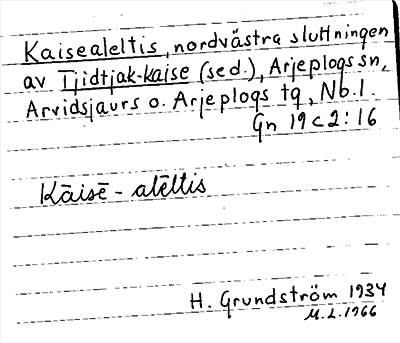 Kaisealeltis, nordvästra sluttningen
av Tjidtjak-kaise (sed.), Arjeplogs sn,
Arvidsjaurs o. Arjeplogs tg, Nb.l.
Gn 19c2:16
Kāisē-alēltis
H. Grundström 1934
M.L.1966